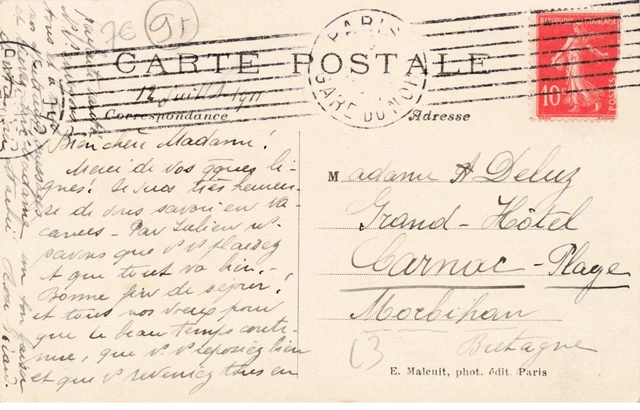 7€ 95
CARTE POSTALE
PARIS
GARE DU NORD
RÉPUBLIQUE FRANÇAISE
10
POSTES
12 Juillet 1911
Correspondance
Adresse
Bien chère Madame!
Merci de vos qques li-
gnes! Je suis très heureu-
se de vous savoir en Va-
cances - Par Julien ns
savons que vs vs plaisez
et que tout va bien. -
Bonne fin de séjour!
et tous nos vœux pour
que le beau temps conti-
nue, que vs vs reposiez bien
et que vs reveniez tous en
Madame A Deluz
Grand-Hôtel
Carnac-Plage
Morbihan
Bretagne
63
E. Malcuit, phot. édit. Paris